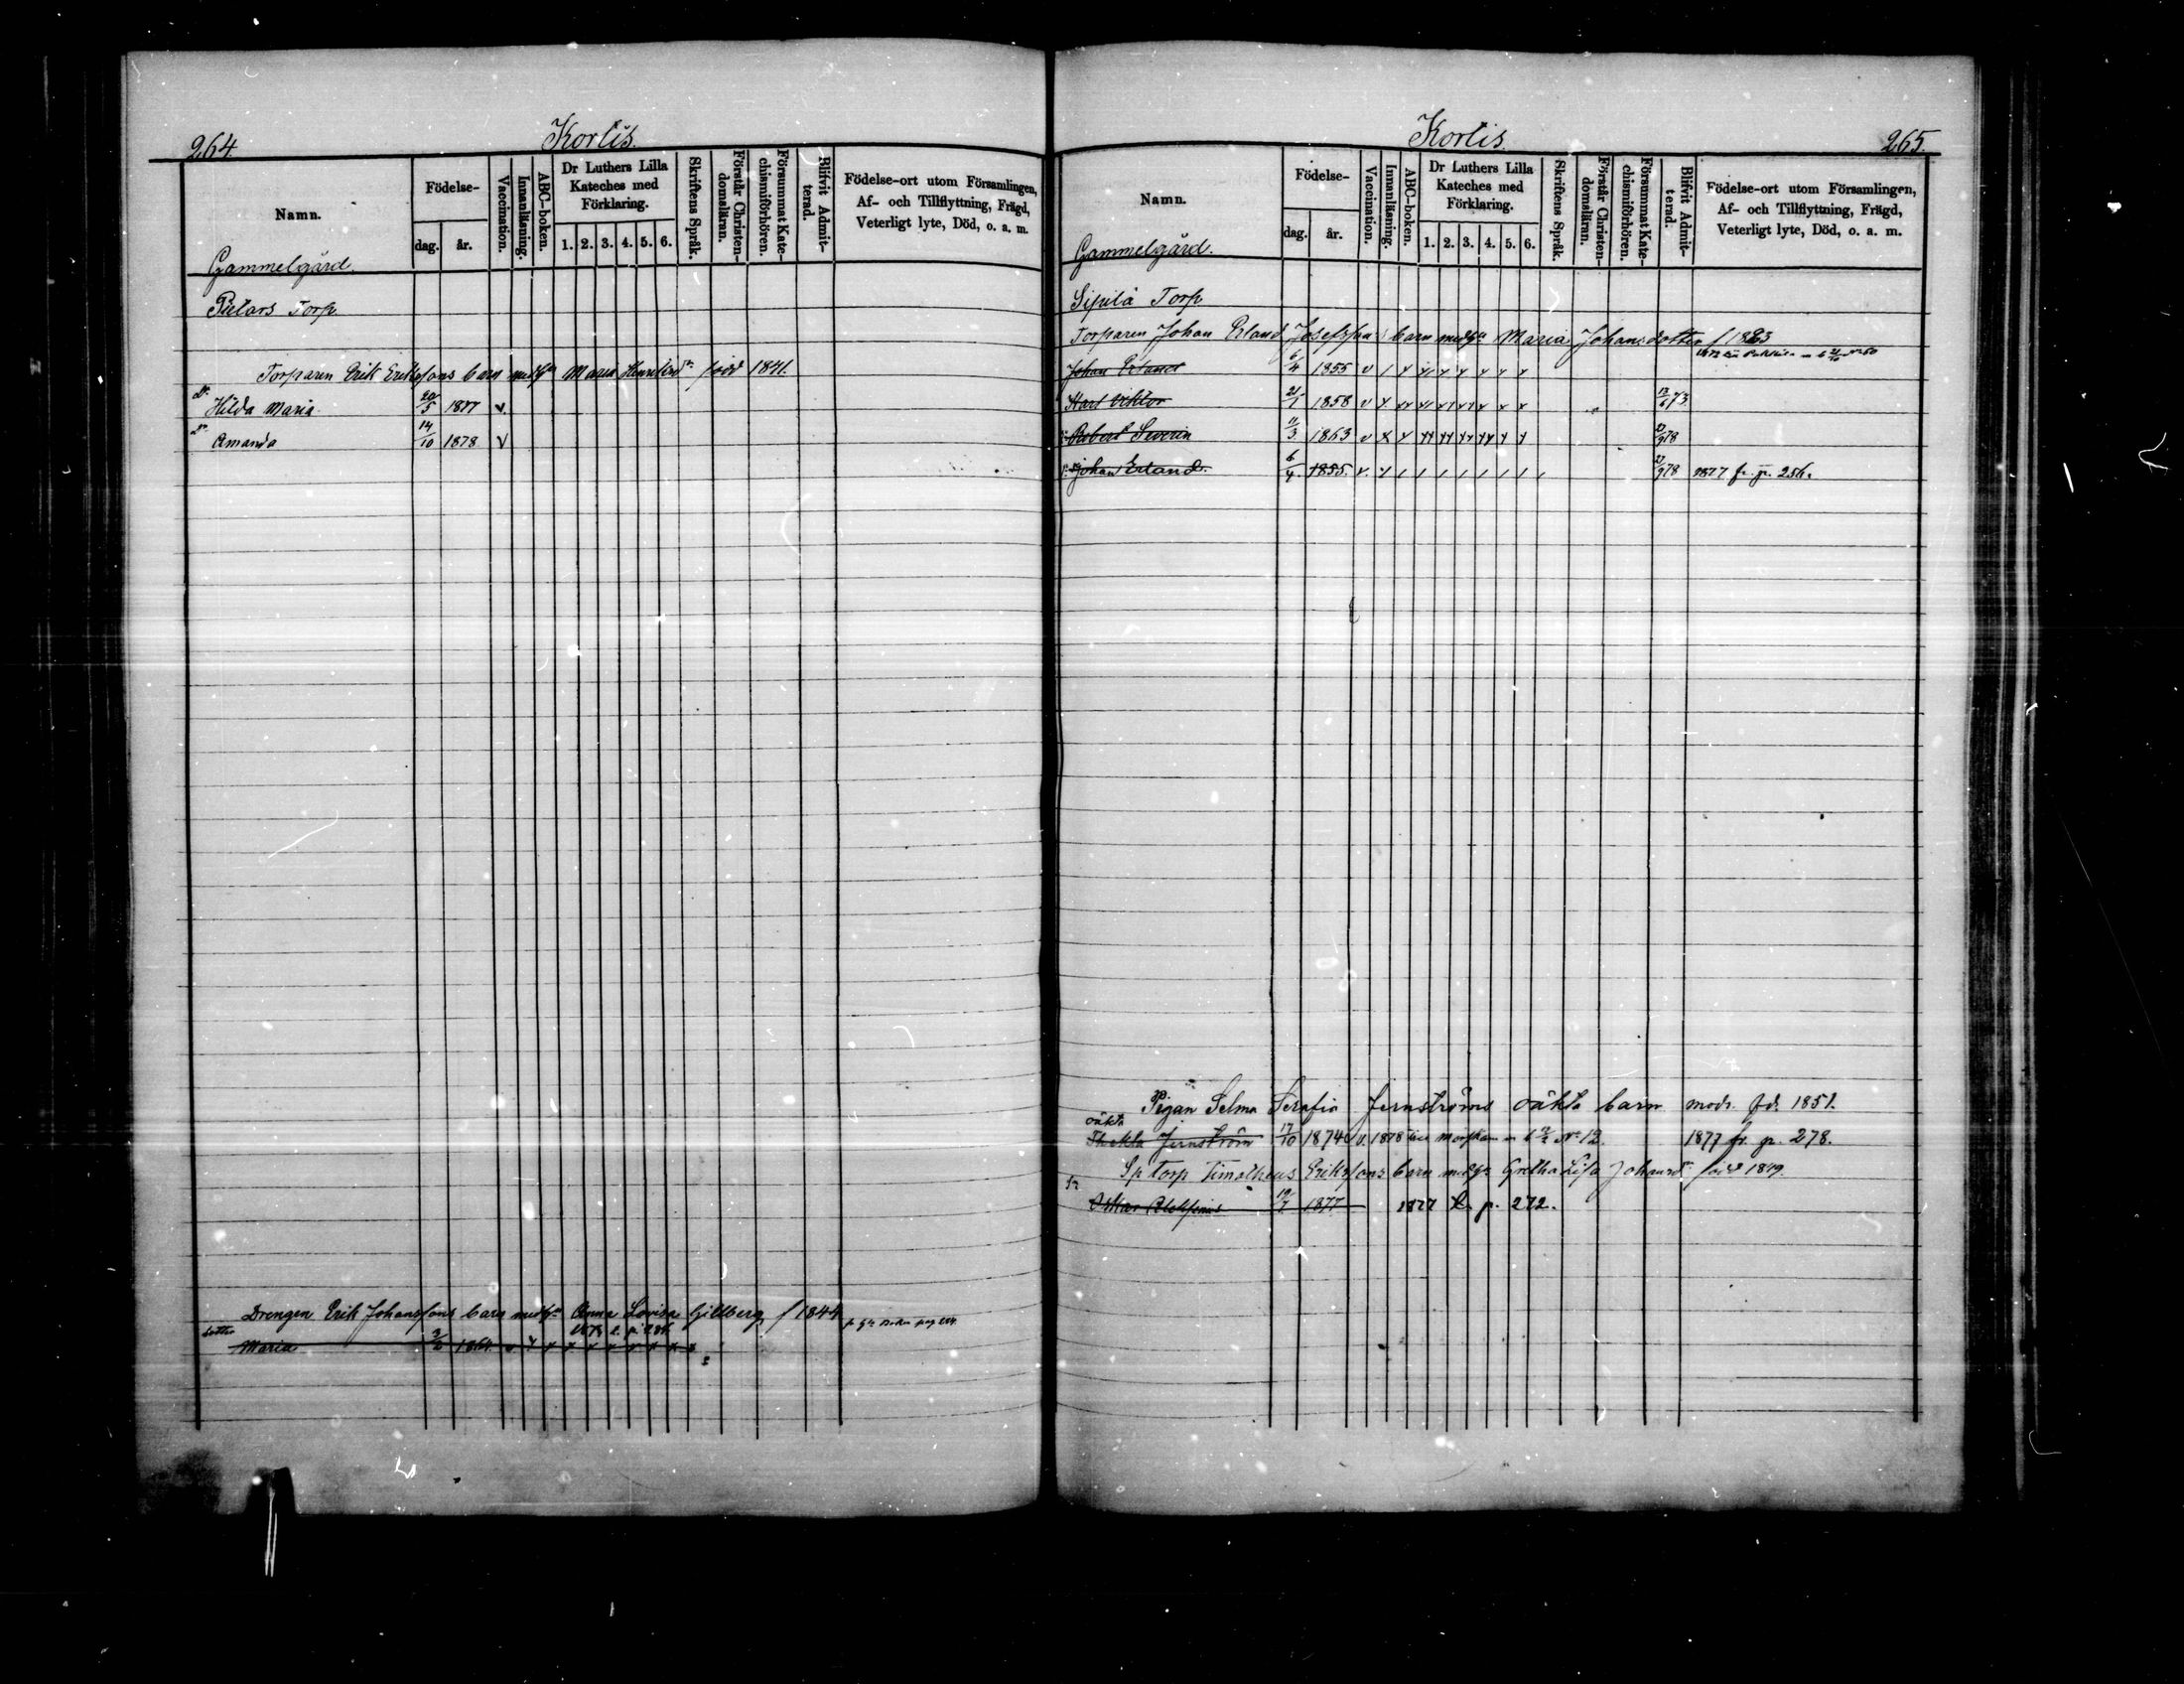 264.
Kortis.
Namn.
Födelse-
dag.
år.
Vaccination.
Innanläsning.
ABC-boken.
Dr Luthers Lilla
Kateches med
Förklaring.
1. 2. 3. 4. 5. 6.
Skriftens Språk.
Förstår Christen-
domsläran.
Försummat Kate-
chismiförhören.
Blifvit Admit-
terad.
Födelse-ort utom Församlingen,
Af- och Tillflyttning, Frägd,
Veterligt lyte, Död, o. a. m.
Gammelgård.
Torp
Torparen Erik Erikssons barn med hu Maria född 1841.
Dr Hilda Maria 20/5 1877 v.
Dr Amanda 14/10 1878 v
Drengen Erik Johanssons barn med hu Anna Lovisa Gillberg f 1844
dotter
Maria 1864
265.
Kortis.
Namn.
Födelse-
dag.
år.
Vaccination.
Innanläsning.
ABC-boken.
Dr Luthers Lilla
Kateches med
Förklaring.
1. 2. 3. 4. 5. 6.
Skriftens Språk.
Förstår Christen-
domsläran.
Försummat Kate-
chismiförhören.
Blifvit Admit-
terad.
Födelse-ort utom Församlingen,
Af- och Tillflyttning, Frägd,
Veterligt lyte, Död, o. a. m.
Gammelgård.
Sipilä Torp
Torparen Johan Erland Josefsson barn med hu Maria Johansdotter
Johan Erland 6/4 1855 v
Karl Viktor 21/1 1858 v
Robert Severin 11/3 1863 v
Johan Erland 6/4 1855. v. 1877 fr. p. 256.
Pigan Selma Serafia Jernströms oäkta barn modr. fd. 1851.
oäkta
Thekla Jernström 17/10 1874 v. 1878 No 12. 1877 fr. p. 278.
Sp torp Timotheus Erikssons barn med hu Gretha Lisa Johansdr född 1849.
Sn
Oskar 19/7 1877 1877 p. 272.